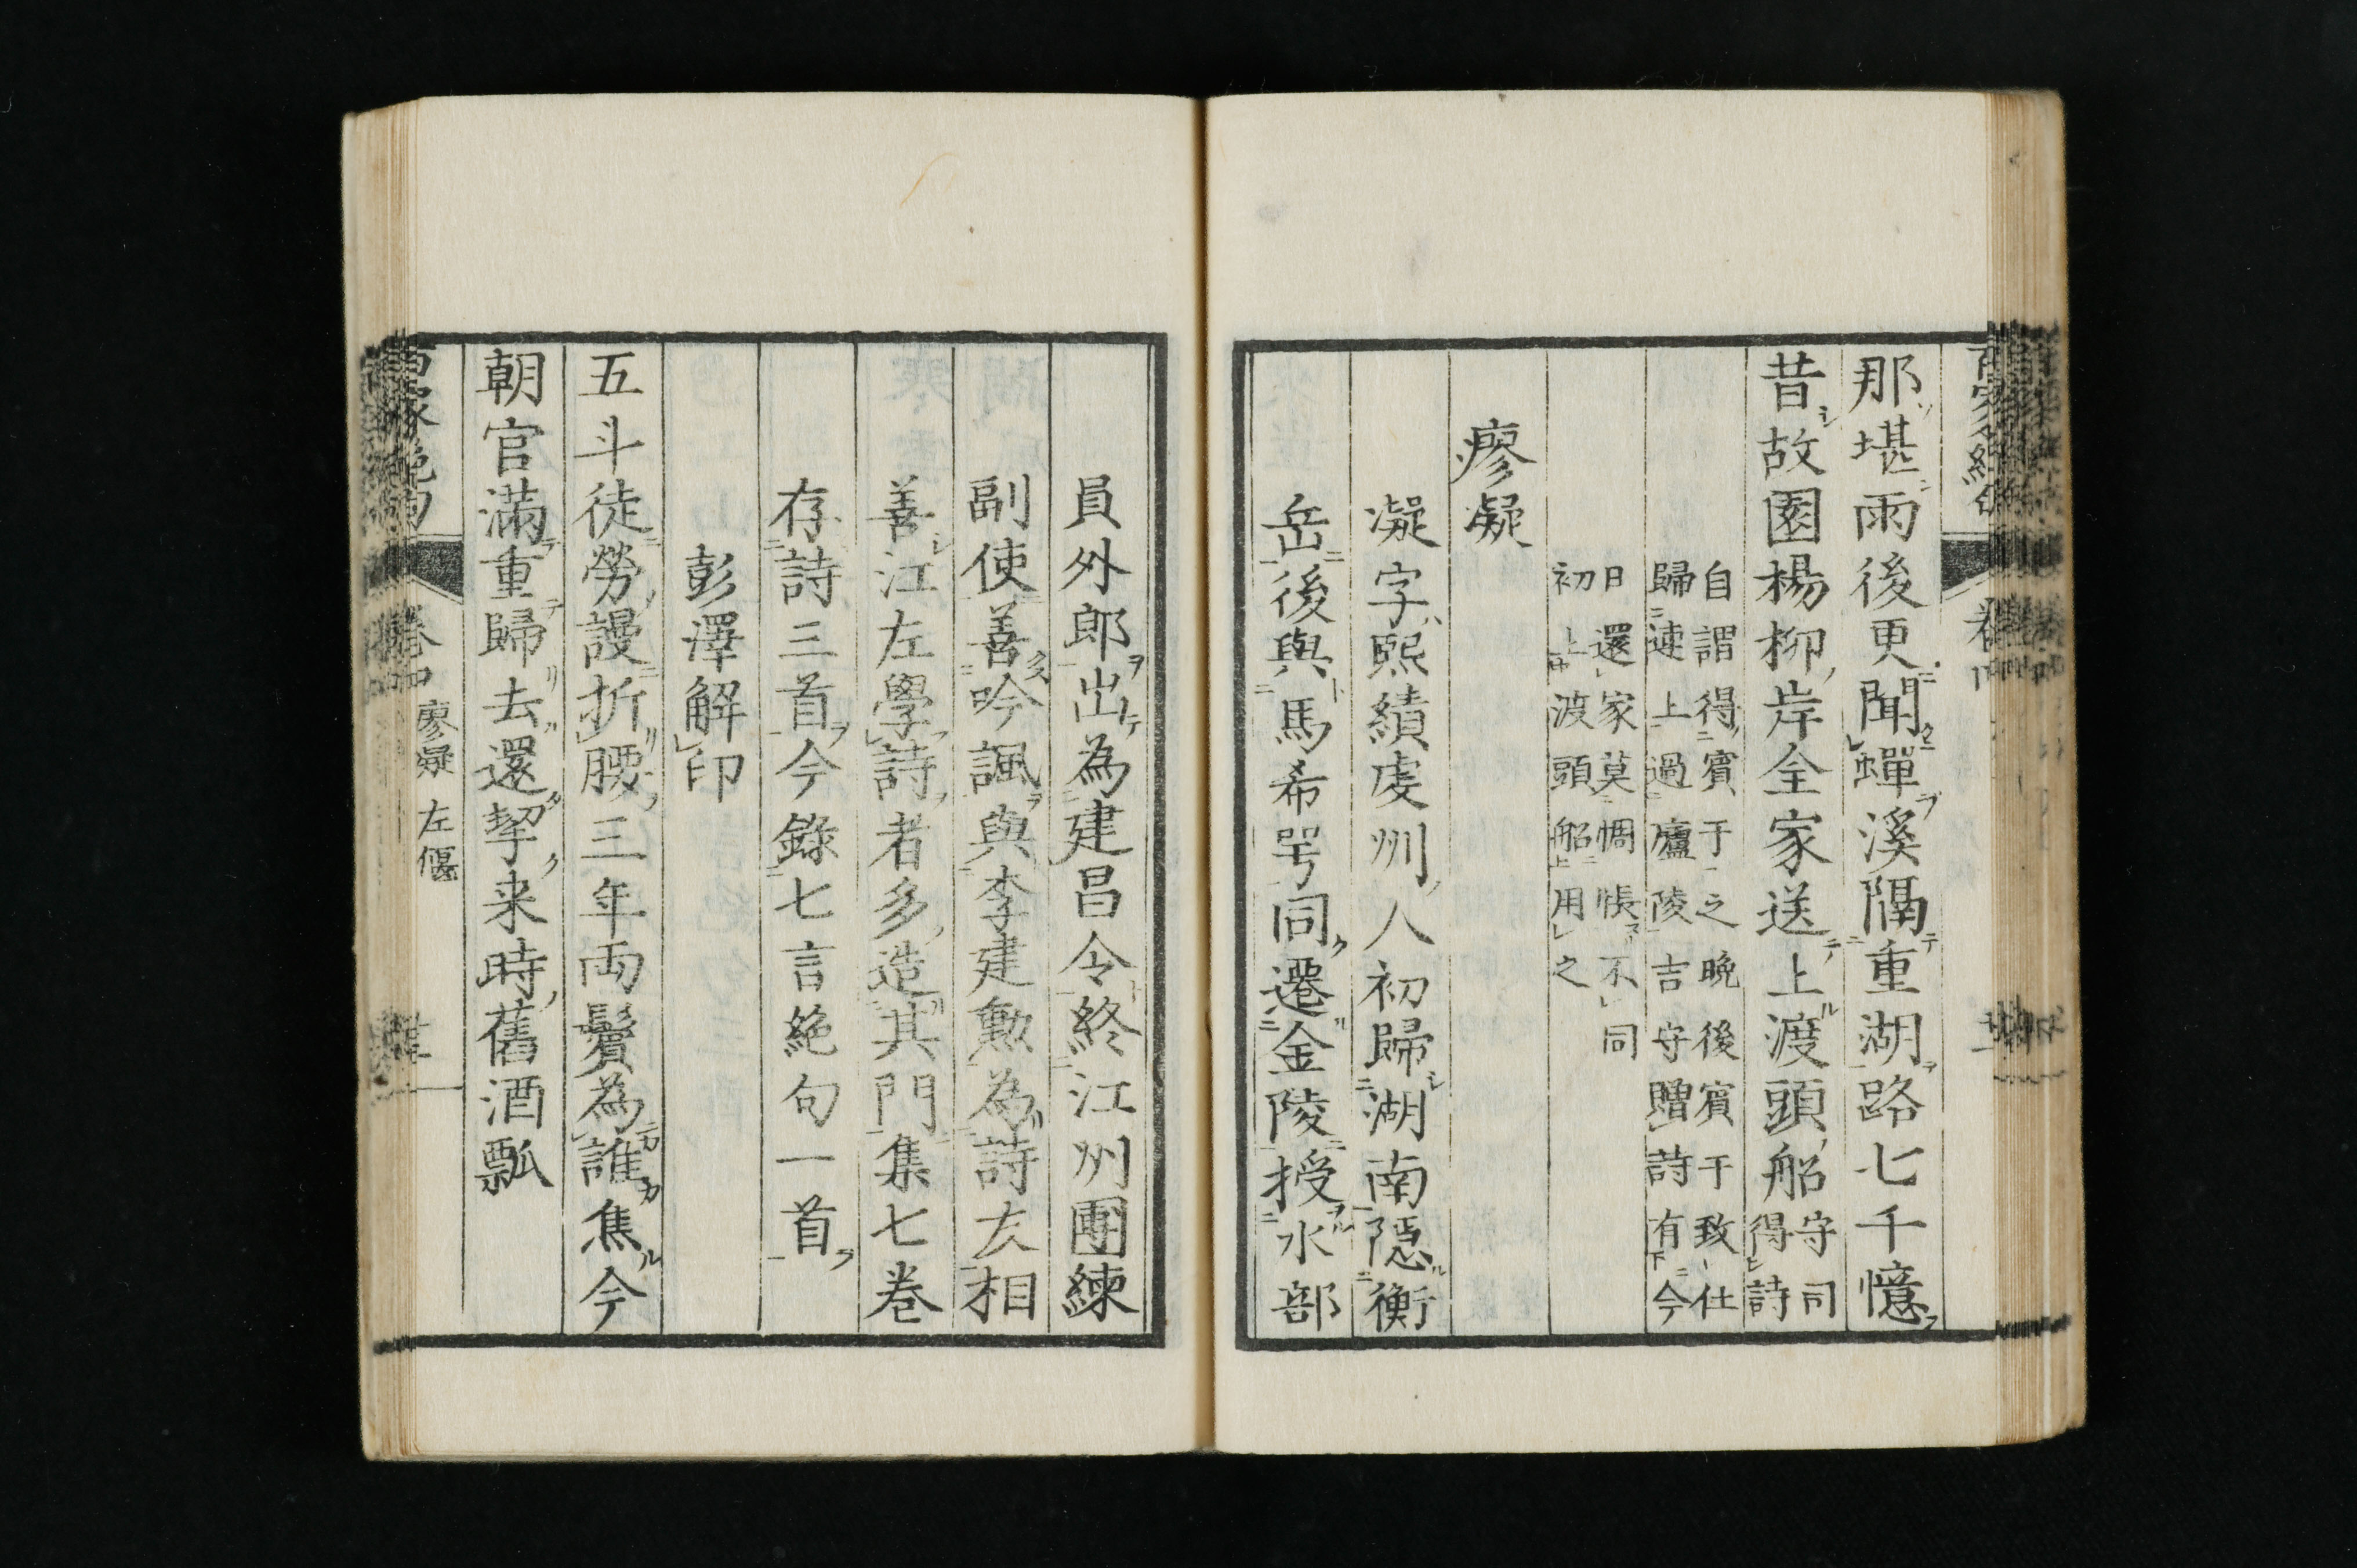 那堪雨後更聞蟬溪隔重湖路七千憶
昔故園楊柳岸全家送上渡頭船守司得詩
自謂得賓于之晩後賓于致仕
歸連上過廬陵吉守贈詩有今
日還家莫惆悵不同
初上渡頭船用之
廖凝
凝字熙績虔州人初歸湖南隠衡
岳後與馬希咢同遷金陵授水部
員外郎出為建昌令終江州團練
副使善吟諷與李建勲為詩友相
善江左學詩者多造其門集七巻
存詩三首今錄七言絶句一首
彭澤解印
五斗徒勞謾折腰三年両鬢為誰焦今
朝官滿重歸去還挈来時舊酒瓢
百家絶句
巻四
廖凝 左偃